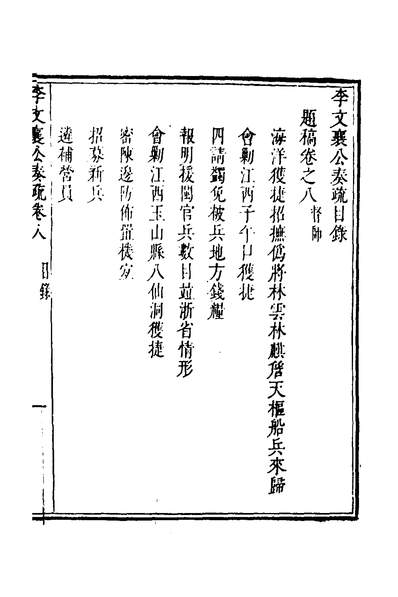 李文襄公奏疏目錄
題稿卷之八 督師
海洋獲捷招撫僞將林雲林麒詹天樞船兵來歸
會勦江西子午口獲捷
四請蠲免被兵地方錢糧
報明援閩官兵數目並浙省情形
會勦江西玉山縣八仙洞獲捷
密陳邊防佈置機宜
招募新兵
遴補營員
李文襄公奏疏卷八 目錄 一